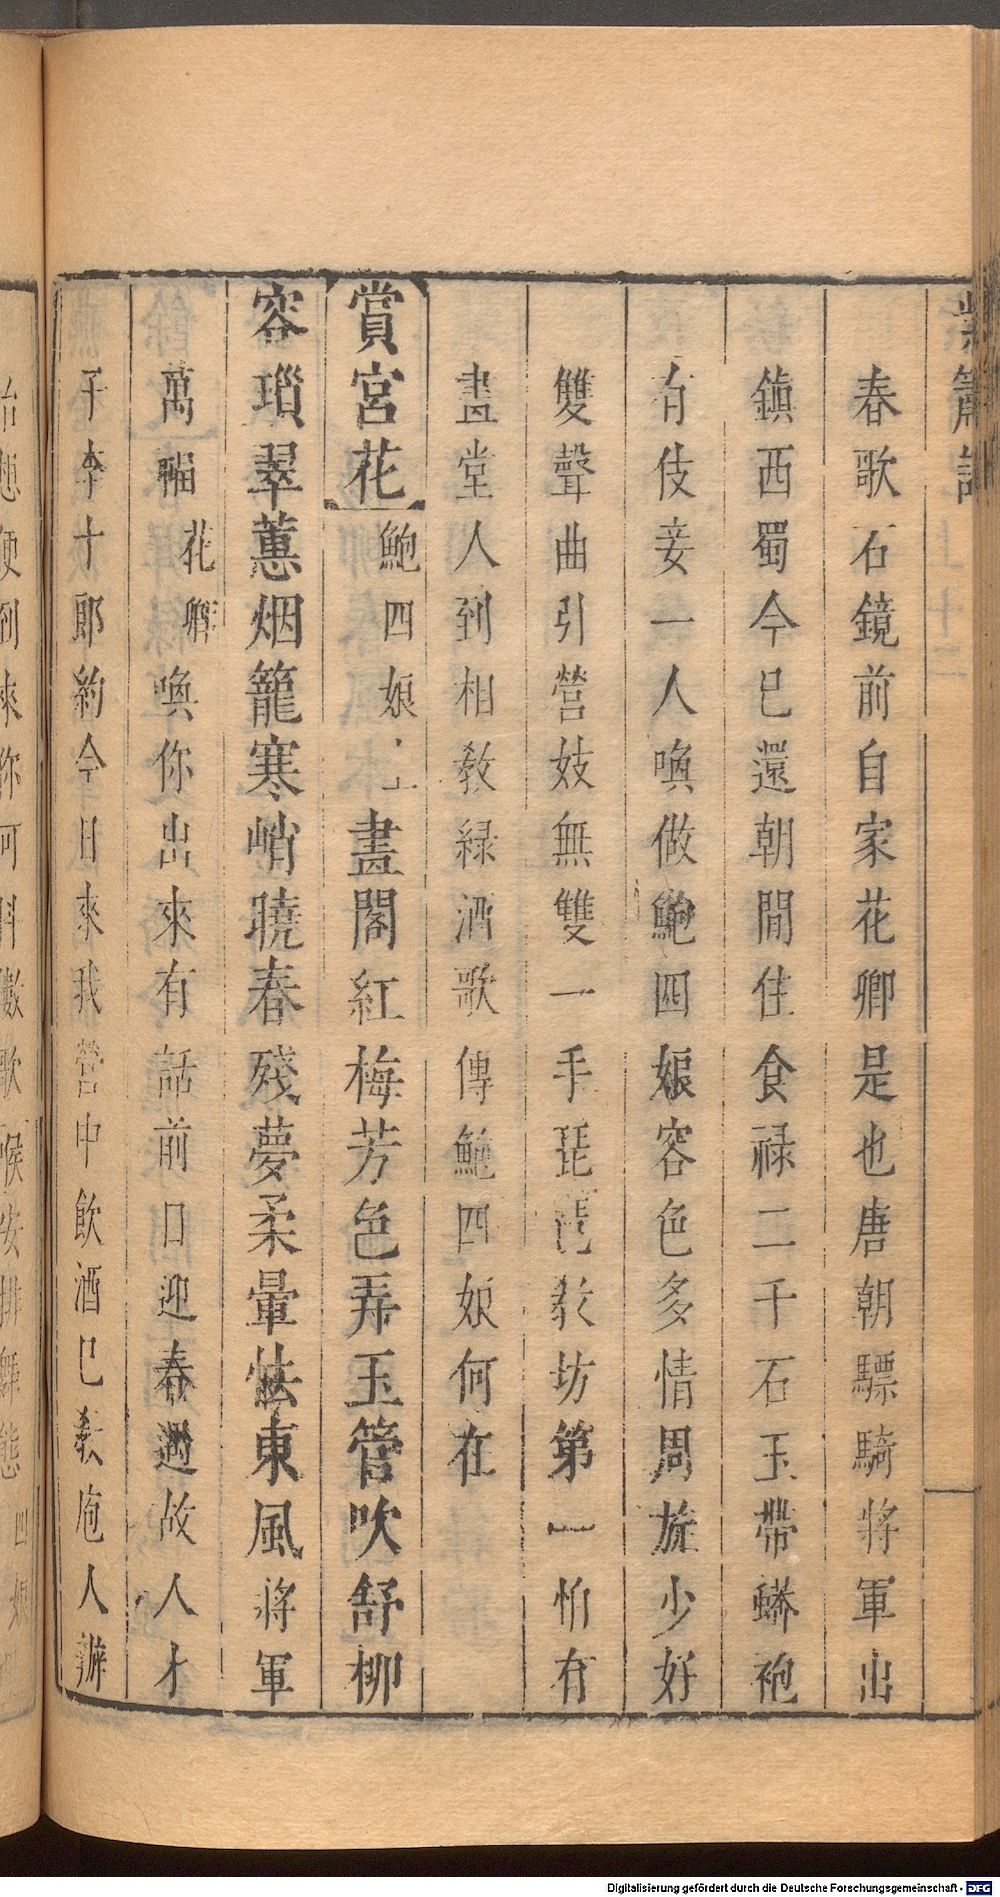 紫簫記
春歌石鏡前自家花卿是也唐朝驃騎將軍出
鎮西蜀今已還朝閒住食祿二千石玉帶蟒袍
有伎妾一人喚做鮑四娘容色多情周旋少好
雙聲曲引營妓無雙一手琵琶教坊第一怕有
畫堂人到相教緑酒歌傳鮑四娘何在
賞宮花 鮑四娘上 畫閣紅梅芳色弄玉管吹舒柳
容瑣翠蕙烟籠寒峭曉春殘夢柔暈怯東風將軍
萬福 花卿 喚你出來有話前日迎春遇故人才
子李十郎約今日來我營中飲酒已教庖人辦
便到來你可 數歌喉安排舞態 四娘
Digitalisierung gefördert durch die Deutsche Forschungsgemeinschaft - DFG